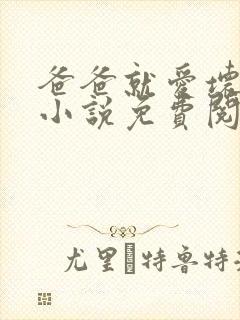 爸爸就愛壞
小說免費閱
尤里 特魯特